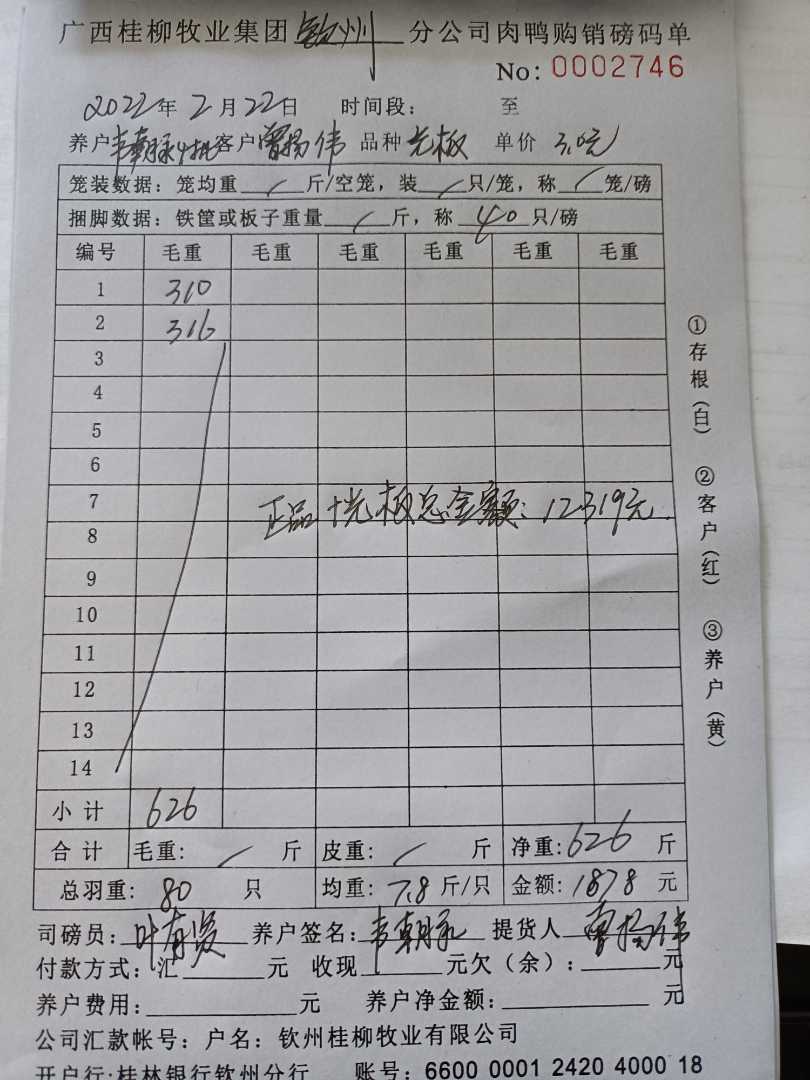 广西桂柳牧业集团 钦州 分公司肉鸭购销磅码单
No: 0002746
2022年2月22日 时间段: 至
养户 韦朝脉4批 客户 曾扬伟 品种 光板 单价 3.0元
笼装数据: 笼均重 / 斤/空笼, 装 / 只/笼, 称 / 笼/磅
捆脚数据: 铁筐或板子重量 / 斤, 称 40 只/磅
编号 毛重 毛重 毛重 毛重 毛重 毛重
1 310
2 316
3
4
5
6
7
正品+光板总金额: 12319元.
8
9
10
11
12
13
14
小计 626
合计 毛重: / 斤 皮重: / 斤 净重: 626 斤
总羽重: 80 只 均重: 7.8 斤/只 金额: 1878 元
司磅员: 叶有 养户签名: 韦朝脉 提货人 曾扬伟
付款方式: 汇 元 收现 元欠(余): 元
养户费用: 元 养户净金额: 元
公司汇款帐号: 户名: 钦州桂柳牧业有限公司
开户行:桂林银行钦州分行 账号: 6600 0001 2420 4000 18
①存根(白) ②客户(红) ③养户(黄)